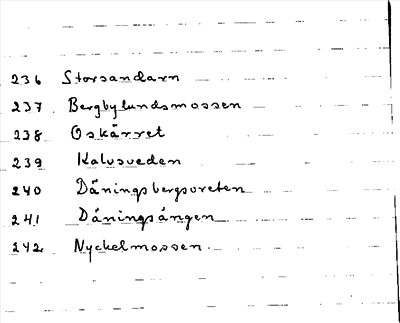 236 Storsandarn
237 Bergbylundsmossen
238 Oskärret
239 Kalvsveden
240 Däningsbergsvreten
241 Däningsängen
242 Nyckelmossen